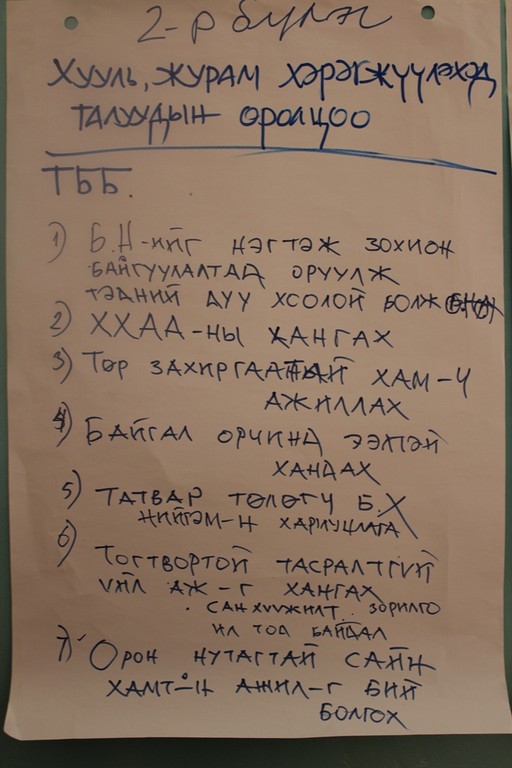 2-р бүлэг
ХУУЛЬ, ЖУРАМ ХЭРЭГЖҮҮЛЭХЭД
ТАЛУУДЫН ОРОЛЦОО
ТББ.
1) Б.Н-ИЙГ НЭГТЭЖ ЗОХИОН
БАЙГУУЛАЛТАД ОРУУЛЖ
ТЭДНИЙ ДУУ ХООЛОЙ БОЛЖ
2) ХХАА-НЫ ХАНГАХ
3) ТӨР ЗАХИРГААТАЙ ХАМ-Ч
АЖИЛЛАХ
4) БАЙГАЛ ОРЧИНД ЭЭЛТЭЙ
ХАНДАХ
5) ТАТВАР ТӨЛӨГЧ Б.Х
НИЙГЭМ-Н ХАРИУЦЛАГА
6) ТОГТВОРТОЙ ТАСРАЛТГҮЙ
ҮЙЛ АЖ-Г ХАНГАХ
. САНХҮҮЖИЛТ. ЗОРИЛГО
ИЛ ТОД БАЙДАЛ
7) ОРОН НУТАГТАЙ САЙН
ХАМТ-Н АЖИЛ-Г БИЙ
БОЛГОХ